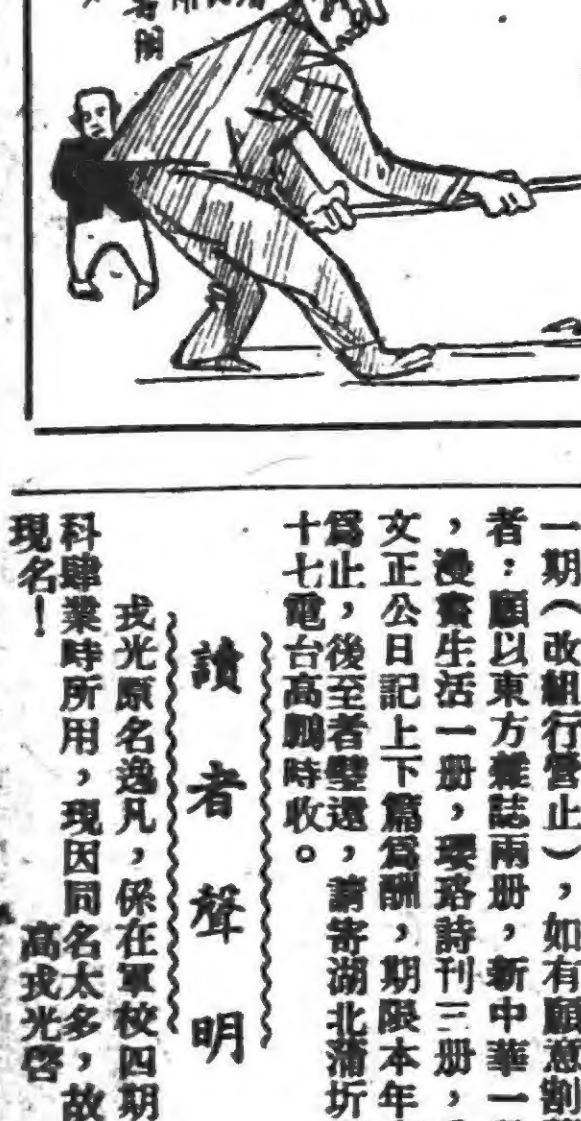 一期（改組行營止），如有願意割
者：願以東方雜誌兩册，新中華一
，漫畫生活一册，瓔珞詩刊三册，
文正公日記上下篇爲酬，期限本年
爲止，後至者璧還，請寄湖北蒲圻
十七電台高鵬時收。
讀者聲明
戎光原名逸凡，係在軍校四期
科肄業時所用，現因同名太多，故
現名！
高戎光啓